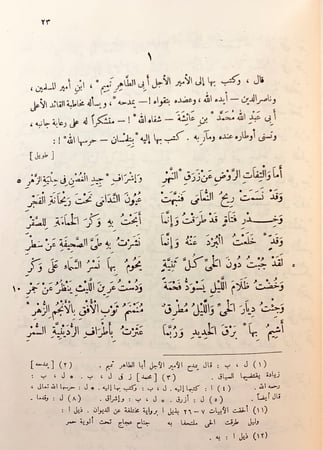 ٢٣
١
قال ، وكتب بها إلى الأمير الأجل أبى الطاهر تميم ، ابن أمير المسلمين ،
وناصر الدين — أيده الله ، وعضده بتقواه ! — يمدحه ، ويسأله مخاطبة القائد الأعلى
أبى عبد الله محمد بن عائشة — شفاه الله — متشكرا له على رعاية جانبه ،
وتسنى أوطاره عنده ومآربه . كتب بها إليه ببلنسية — حرسها الله ! :
[ طويل ]
أما والتفات الروض عن زرق النهر وإشراف جيد الغصن فى حلية الزهر ٥
وقد نسمت ريح النعامى فنبهت عيون الندامى تحت ريحانة الفجر
وخدر فتاة قد طرقت وإنما أبحت به وكر الحمامة للصقر
وقد خلعت البرد عنه وإنما نشرت به طى الصحيفة عن سطر
لقد جبت دون الحى كل ثنية يحوم بها نسر السماء على وكر
وخضت ظلام الليل يسود فحمة ودست عرين الليث ينظر عن جمر ١٠
وجئت ديار الحى والليل مطرق منمنم ثوب الأفق بالأنجم الزهر
أشيم بها برق الحديد وربما عثرت بأطراف الردينية السمر
(١) ل ، ب : قال يمدح الأمير الأجل أبا الطاهر تميم . (٢) [ يمدحه ]
زيادة يقتضيها السياق . (٣) [ محمد ] ز ق ل ، ب . ل ، ب :
رحمه الله . (٤) ا : كتبها إليه . ل ، ب : كتب بها إليه . ل : حرسها الله تعالى ،
قال أيضاً . (٥) ل : أزرق . ب : وإشراق . (٨) ل : وقدما .
(١١) أخذت الأبيات ٧ - ٢٦ بذيل ا برواية مختلفة عن الديوان . ذيل ا :
وليل طرقت الحى ملتحفا به جناح عجاج تحت ألوية حمر
(١٢) ذيل ا : به .